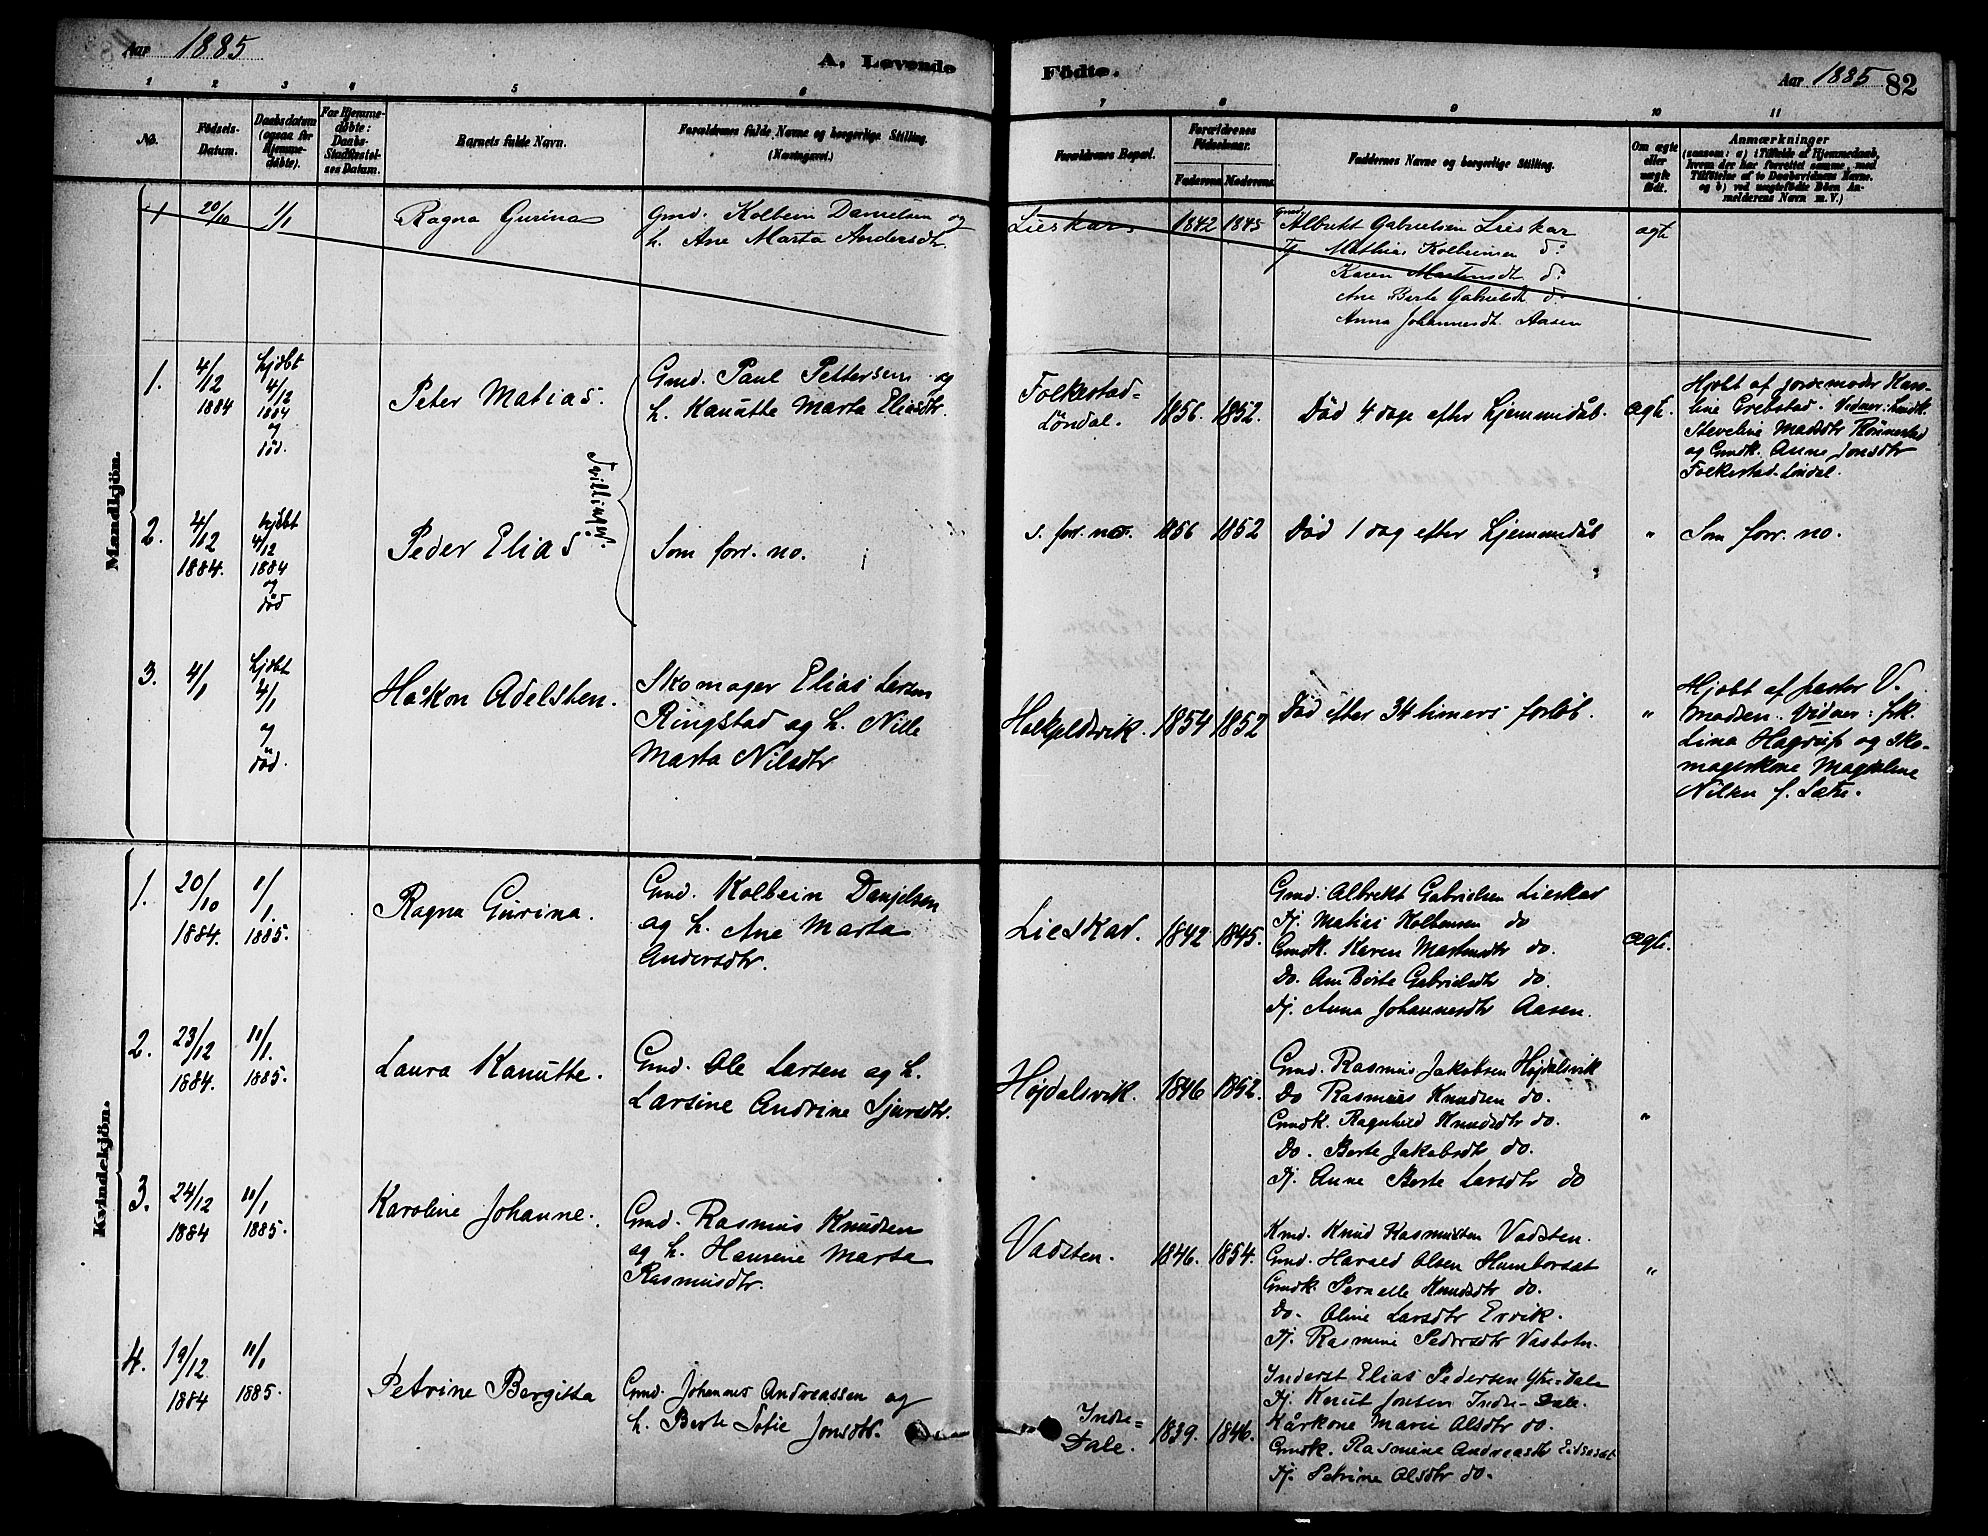 Aar 1885
A. Levende
Födte.
Aar 1885 82
1 2 3 4 5 6 7 8 9 10 11
No.
Födsels-
Datum.
Daabsdatum
(ogsaa for
Hjemme-
døbte).
For Hjemme-
døbte:
Daabs-
Stadfæstel-
ses Datum.
Barnets fulde Navn.
Forældrenes fulde Navne og borgerlige Stilling.
(Næringsvei.)
Forældrenes Bopæl.
Forældrenes
Födselsaar.
Faderens. Moderens.
Faddernes Navne og borgerlige Stilling.
Om ægte
eller
uægte
født.
Anmærkninger
(saasom: a) i Tilfælde af Hjemmedaab,
hvem der har forrettet samme, med
Tilföielse af to Daabsvidners Navne.
og b) ved uægtefödte Börn An-
melderens Navn m. V.)
Mandkjön.
1 20/10 1/1 Ragna Gurina
Gmd. Kolbein Danielsen og
h. Ane Marta Andersdt.
Lieskar 1842 1845
Gmd. Albrekt Gabrielsen Lieskar
Tj Mathias Kolbeinsen do
Karen Martensdt do
Ane Berte Gabrieldt do
Anna Johannesdt. Aasen
ægte
1. 4/12 1884
hjdbt
4/12
1884
og
död.
Peter Matias.
Gmd. Paul Pettersen og
h. Kanutte Marta Eliasdtr.
Folkestad-
Löndal.
1856. 1852.
Död 4 dage efter hjemmedåb.
ægte.
Hjdbt af jordemoder Karo-
line Grebstad. Vidner:
Steveline Madsdtr
og Gmdk. Anne Jonsdtr
Folkestad-Löndal.
Tvillinger.
2. 4/12 1884.
hjdbt
4/12
1884
og
död
Peder Elias
Som forr. no.
s. forr. no. 1856 1852
Död 1 dag efter hjemmedåb
" Som forr. no.
3. 4/1
hjdbt
4/1
og
död.
Håkon Adelsten.
Skomager Elias Larsen
Ringstad og h. Nille
Marta Nilsdtr
Holkjeldsvik. 1854 1852
Död efter 34 timers forlöb.
"
Hjdbt af pastor V.
Madsen. Vidner: frk.
Lina Hagrup og sko-
magerkone Magdeline
Nilsen f. Sætre.
Kvindekjön.
1. 20/10 1884. 1/1. 1885.
Ragna Gurina.
Gmd. Kolbein Danjelsen
og h. Ane Marta
Andersdtr.
Lieskar. 1842 1845.
Gmd. Albrekt Gabrielsen Lieskar
Tj. Matias Kolbensen do
Gmdk. Karen Martinsdtr do.
Do. Ane Berte Gabrielsdtr do.
Tj. Anna Johannesdtr Aasen.
ægte.
2. 23/12 1884. 11/1. 1885.
Laura Kanutte.
Gmd. Ole Larsen og h.
Larsine Andrine Sjursdtr.
Højdalsvik. 1846 1852.
Gmd. Rasmus Jakobsen Højdalsvik
Do Rasmus Knudsen do.
Gmdk. Ragnhild Knudsdtr do.
Do. Berte Jakobsdtr do.
Tj. Anne Berte Larsdtr do
"
3. 24/12 1884 11/1 1885.
Karoline Johanne.
Gmd. Rasmus Knudsen
og h. Hansine Marta
Rasmusdtr.
Vadsten. 1846. 1854.
Kmd. Knud Rasmussen Vadsten.
Gmd. Harald Olsen Humborsæt
Gmdk. Pernelle Knudsdtr do.
Do. Oline Larsdtr Ervik.
Tj. Rasmine Pedersdtr Vasbotn.
"
4. 19/12. 1884 11/1 1885.
Petrine Bergitta
Gmd. Johannes Andreassen og
h. Berte Sofie Jonsdtr.
Indre-
Dale.
1839. 1846.
Inderst Elias Pedersen Ytre-Dale
Tj. Knut Jonsen Indre-Dale.
Kårkone Marie Olsdtr do.
Gmdk. Rasmine Andreasdtr Eidsæt
Tj. Petrine Olsdtr do.